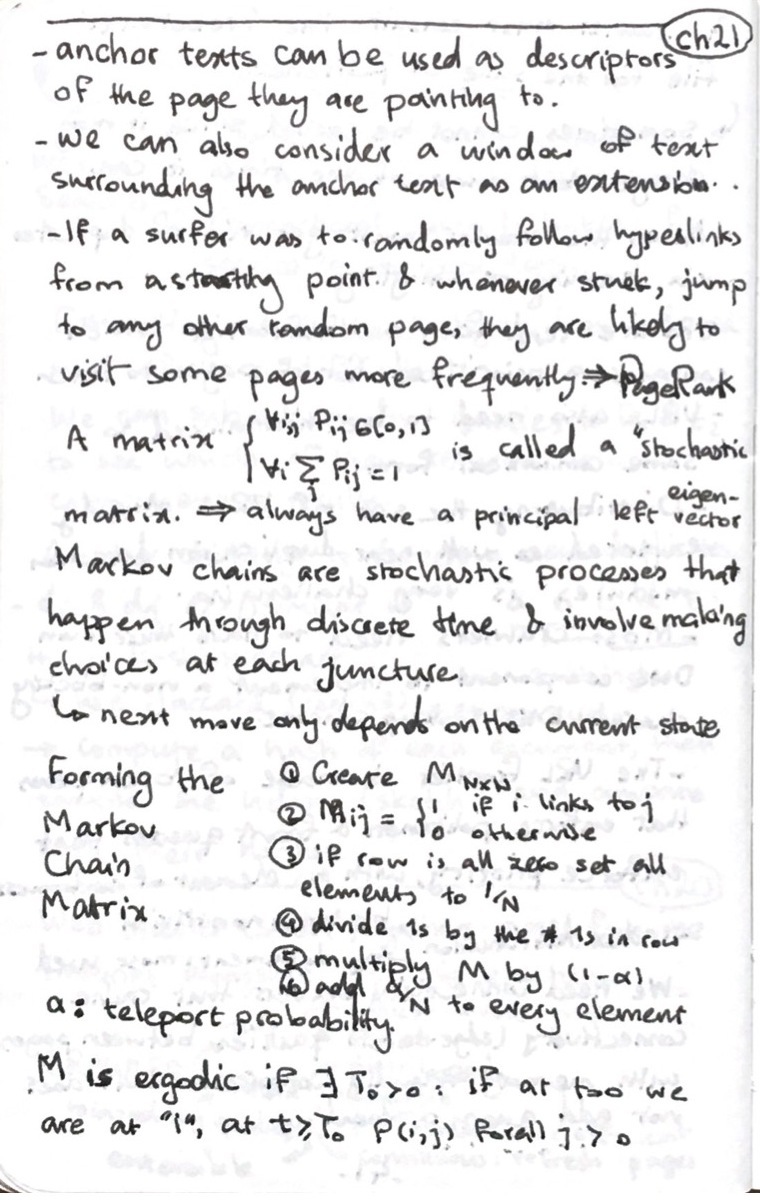 ch21
- anchor texts can be used as descriptors
of the page they are pointing to.
- we can also consider a window of text
surrounding the anchor text as an extension.
- If a surfer was to randomly follow hyperlinks
from a starting point & whenever stuck, jump
to any other random page, they are likely to
visit some pages more frequently. ⇒ PageRank
A matrix { ∀ij Pij ∈ [0,1]
∀i Σj Pij = 1 is called a "stochastic
matrix. ⇒ always have a principal left eigen-vector
Markov chains are stochastic processes that
happen through discrete time & involve making
choices at each juncture
↳ next move only depends on the current state
Forming the Markov Chain Matrix
① Create M N×N
② Mij = { 1 if i links to j
0 otherwise
③ if row is all zero set all
elements to 1/N
④ divide 1s by the # 1s in row
⑤ multiply M by (1-α)
⑥ add α/N to every element
α: teleport probability.
M is ergodic if ∃ T₀>0: if at t=0 we
are at "1", at t≥T₀ P(i,j) forall j > 0